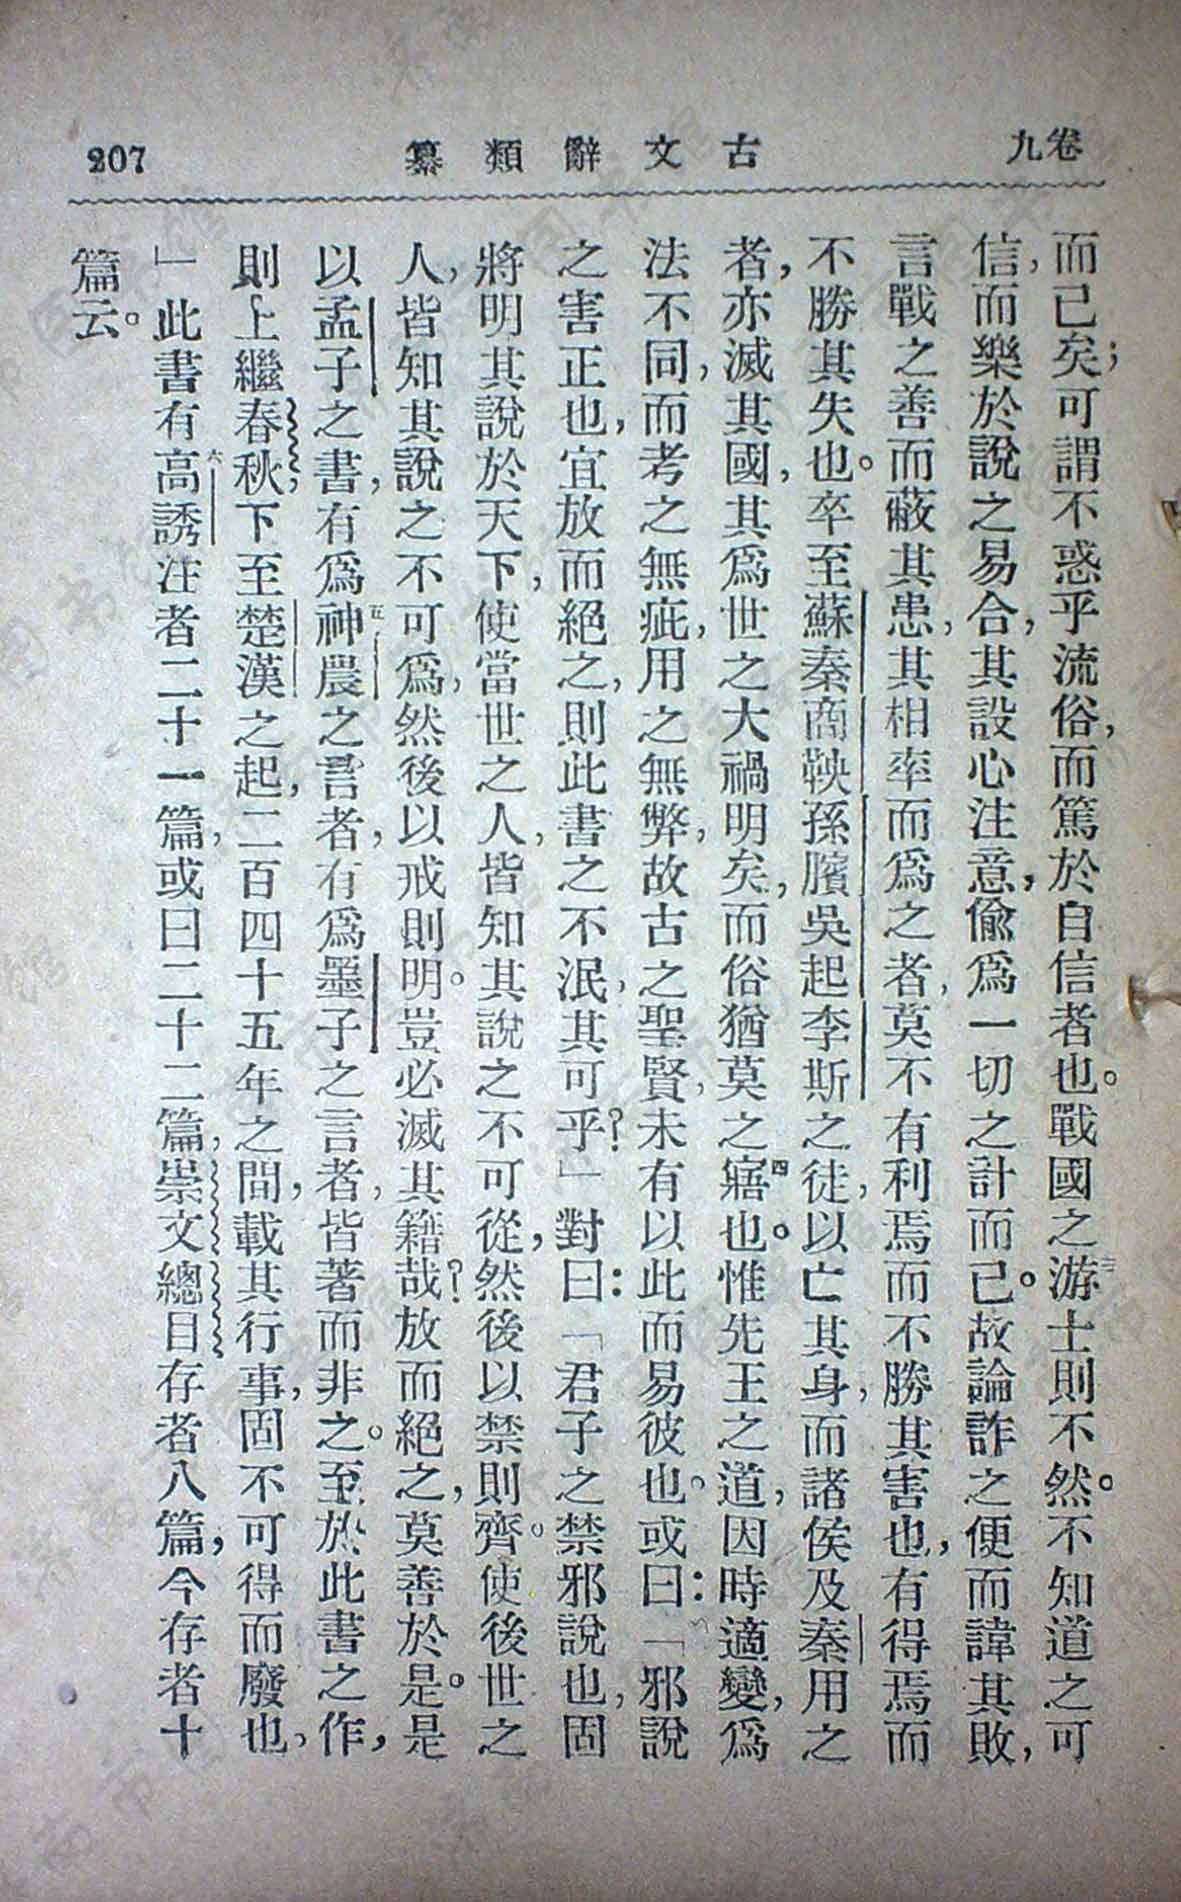 卷九
古文辭類纂
207
而已矣；可謂不惑乎流俗，而篤於自信者也。戰國之游三士則不然。不知道之可
信，而樂於說之易合，其設心注意，偷爲一切之計而已。故論詐之便而諱其敗，
言戰之善而蔽其患，其相率而爲之者，莫不有利焉而不勝其害也，有得焉而
不勝其失也。卒至蘇秦商鞅孫臏吳起李斯之徒，以亡其身，而諸侯及秦用之
者，亦滅其國，其爲世之大禍明矣，而俗猶莫之寤四也。惟先王之道，因時適變，爲
法不同，而考之無疵，用之無弊，故古之聖賢，未有以此而易彼也。或曰：「邪說
之害正也，宜放而絕之，則此書之不泯，其可乎？」對曰：「君子之禁邪說也，固
將明其說於天下，使當世之人，皆知其說之不可從，然後以禁則齊。使後世之
人，皆知其說之不可爲，然後以戒則明。豈必滅其籍哉？放而絕之，莫善於是。是
以孟子之書，有爲神五農之言者，有爲墨子之言者，皆著而非之。至於此書之作，
則上繼春秋，下至楚漢之起，二百四十五年之間，載其行事，固不可得而廢也，
」此書有高六誘注者二十一篇，或曰二十二篇，崇文總目存者八篇，今存者十
篇云。